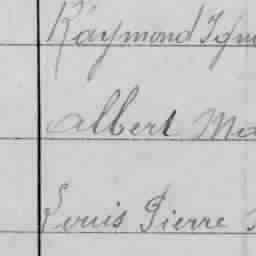 Raymond Igna
Albert Ma
Louis Pierre